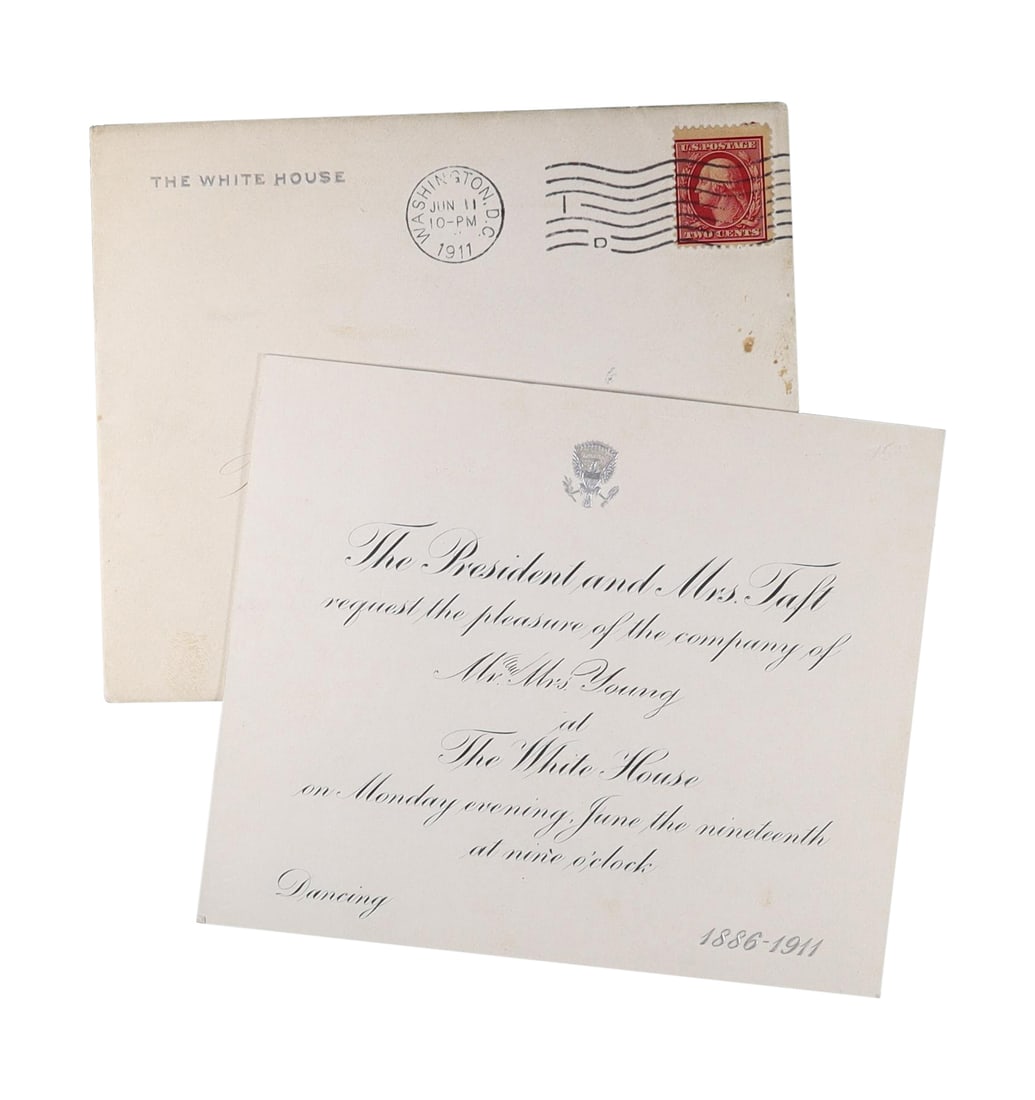 THE WHITE HOUSE
WASHINGTON, D.C.
JUN 11
10-PM
1911
D
U.S. POSTAGE
TWO CENTS
The President and Mrs. Taft
request the pleasure of the company of
Mr. and Mrs. Young
at
The White House
on Monday evening, June the nineteenth
at nine o'clock
Dancing
1886-1911